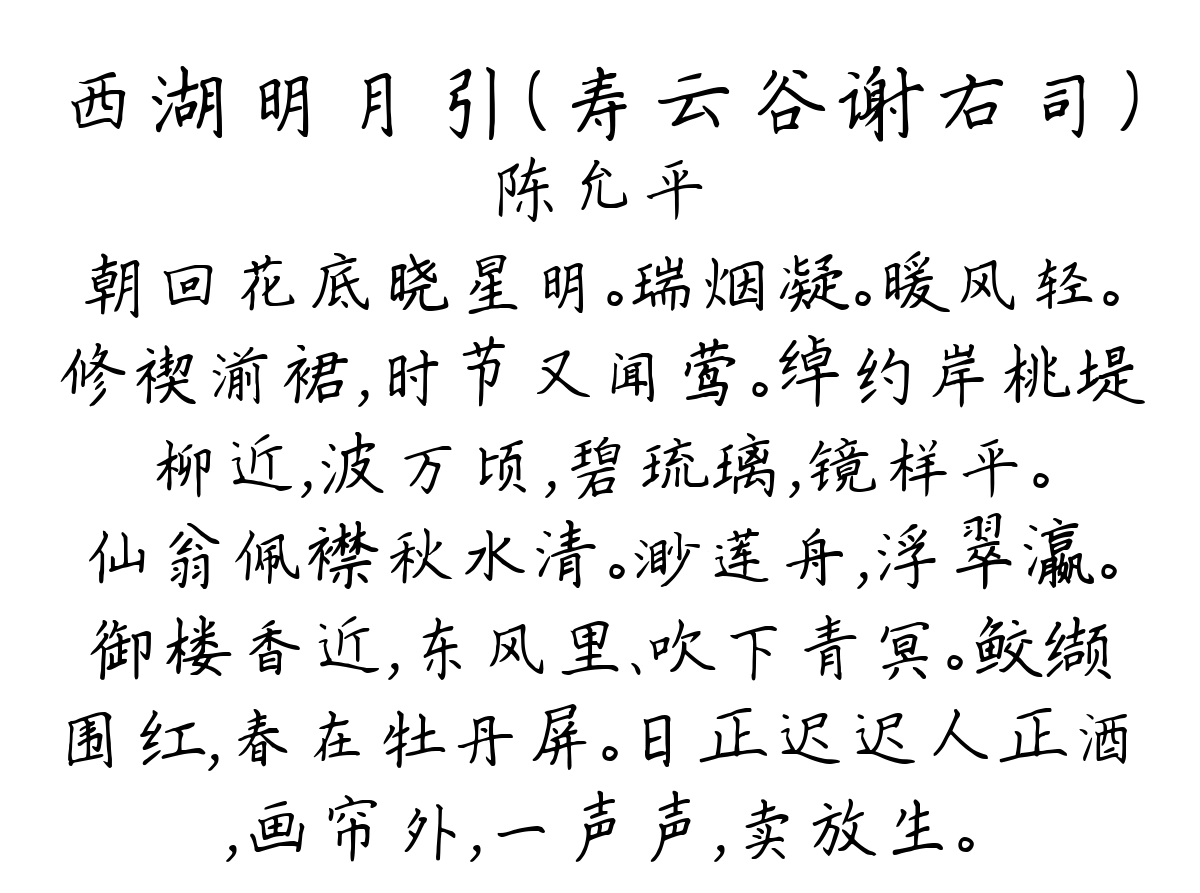 西湖明月引(寿云谷谢右司)
陈允平
朝回花底晓星明。瑞烟凝。暖风轻。
修禊湔裙,时节又闻莺。绰约岸桃堤
柳近,波万顷,碧琉璃,镜样平。
仙翁佩襟秋水清。渺莲舟,浮翠瀛。
御楼香近,东风里、吹下青冥。鲛缬
围红,春在牡丹屏。日正迟迟人正酒
,画帘外,一声声,卖放生。